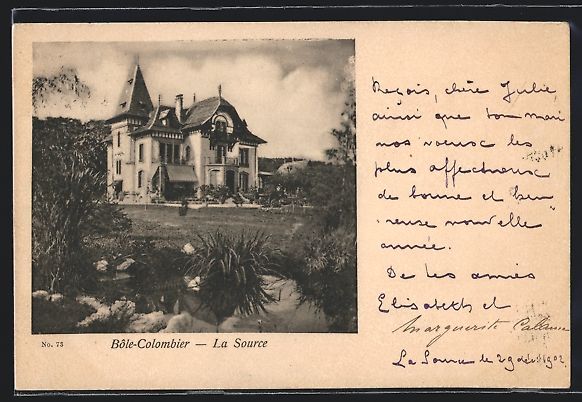 No. 73
Bôle-Colombier — La Source
Reçois, chère Julie,
ainsi que ton mari
nos vœux les
plus affectueux
de bonne et heu
reuse nouvelle
année.
De tes amies
Elisabeth et
Marguerite
La Source le 29 déc. 1902